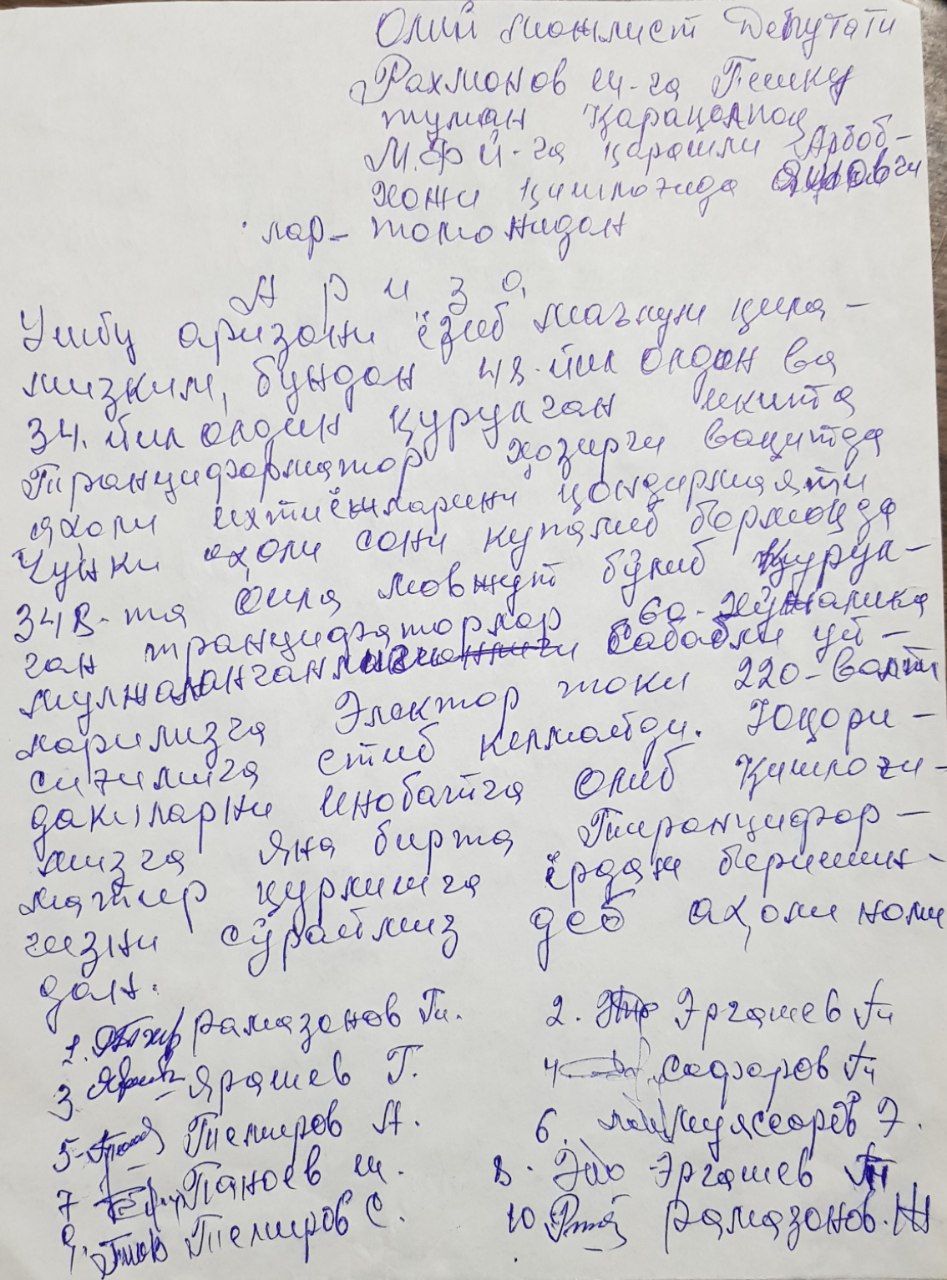 Олий мажлист Депутати
Рахмонов ш-га Пешку
туман Қарақалпоқ
М.Ф.Й-га қарашли Арбоб-
хожи қишлоғида
лар- томонидан
Ариза
Ушбу аризани ёзиб маълум қила-
мизким, бундан 48-йил олдан ва
34-йил олдин қурулган икита
Транцифарматор ҳозирги вақитда
аҳоли ихтиёжларини қондирмаяпти
Чунки аҳоли сони купалиб бормоқда
348-та оила мовжут бўлиб қурул-
ган транцифаторлар 60-хўжалика
мулжаланган сабабли уй-
ларимизга Электор токи 220-валт
сиғимига етиб келмаяпди. Юқори-
дакиларни инобатга олиб қишлоғи-
мизга яна бирта Транцифор-
матир қуришга ёрдам беришин-
гизни сўраймиз деб аҳоли номи
дан.
1. Рамазонов Ш.
2. Эргашев
3. Ярашев Г.
4. Сафаров
5. Темиров А.
6. Муяссаров Э.
7. Паноев Ш.
8. Эргашев
9. Темиров С.
10. Рамазонов. Ж